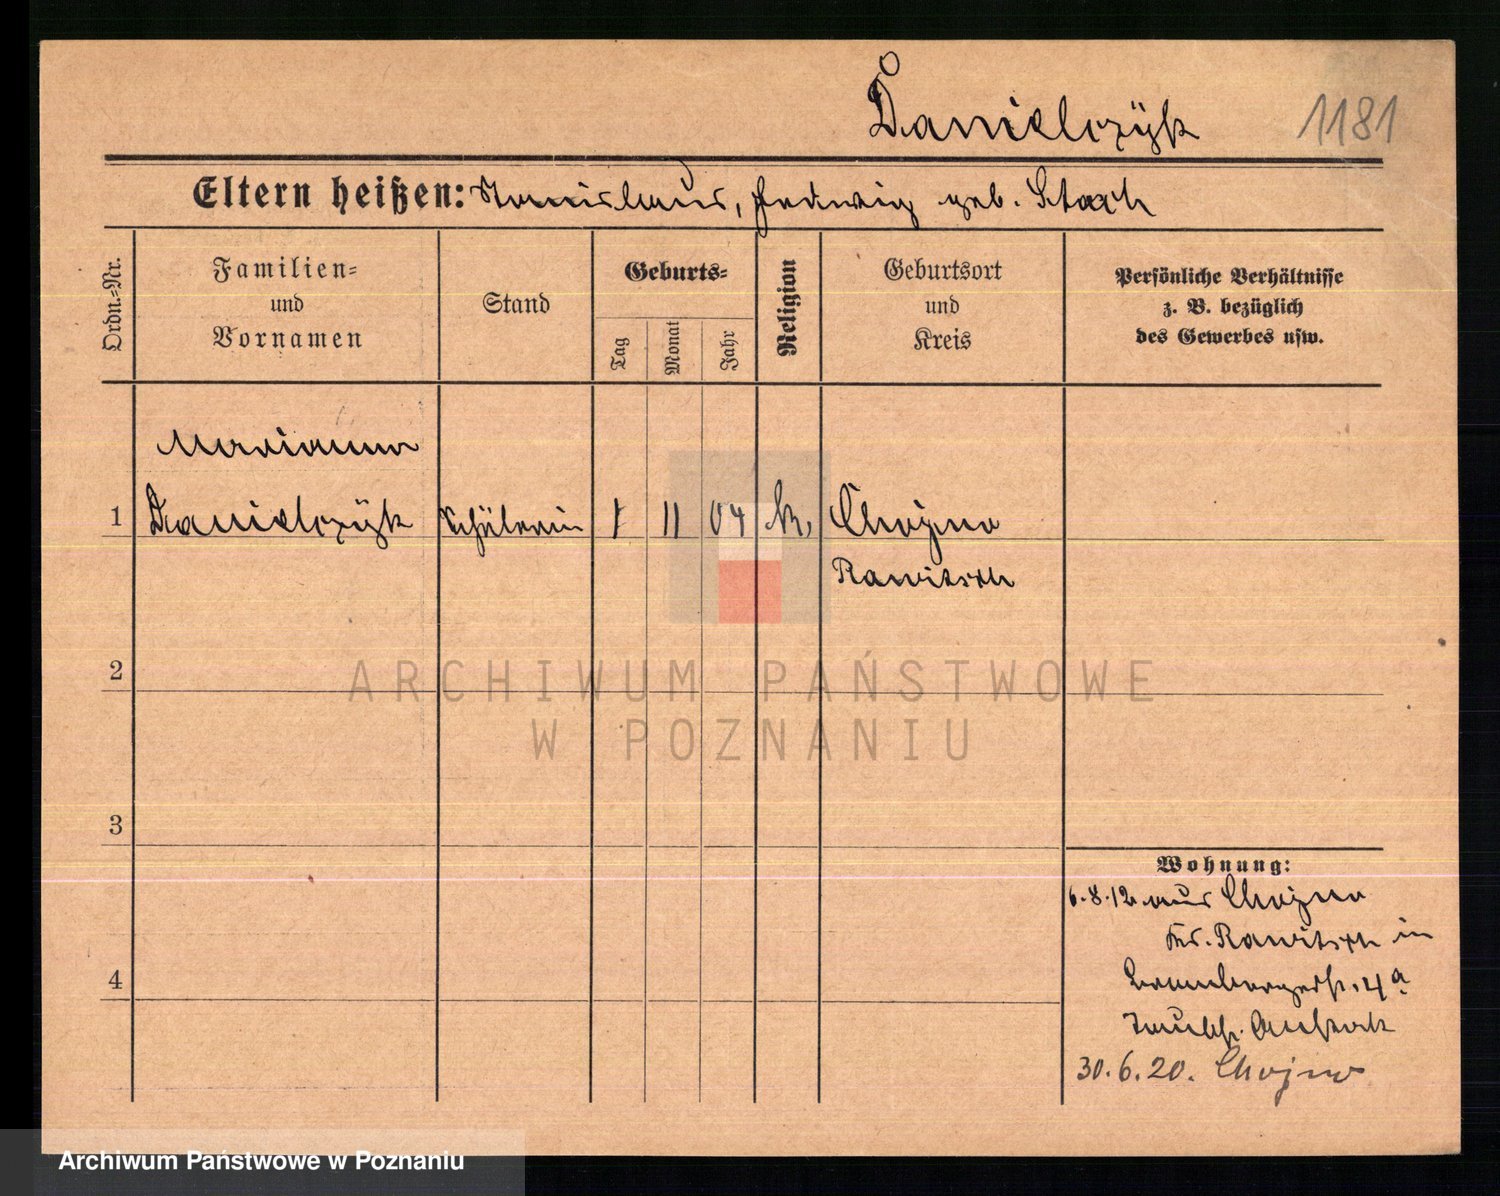 Danielczÿk
1181
Eltern heißen: Stanislaus, Hedwig geb. Stach
Ordn.-Nr.
Familien-
und
Vornamen
Stand
Geburts-
Tag
Monat
Jahr
Religion
Geburtsort
und
Kreis
Persönliche Verhältnisse
z. B. bezüglich
des Gewerbes usw.
Marianna
1 Danielczÿk Schülerin 1 11 04 k. Chojno
Rawitsch
2
ARCHIWUM PAŃSTWOWE
W POZNANIU
3
Wohnung:
6.8.12 aus Chojno
Kr. Rawitsch in
Brombergerstr. 4a
Taubst. Anstalt
4
30.6.20. Chojno
Archiwum Państwowe w Poznaniu